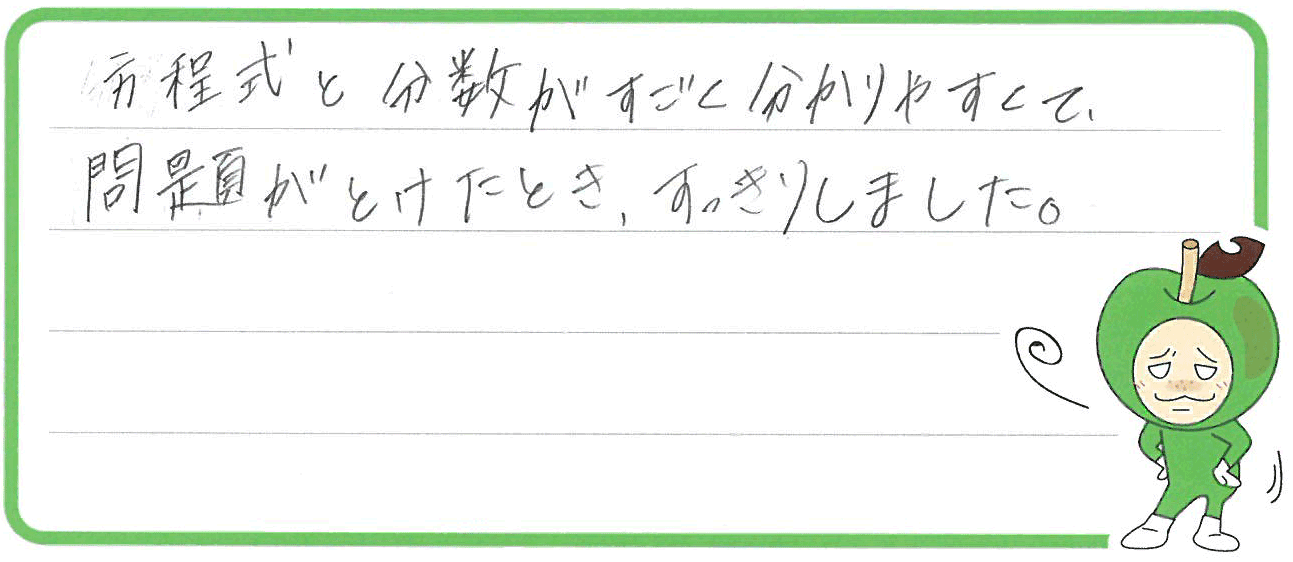 方程式と分数がすごく分かりやすくて、
問題がとけたとき、すっきりしました。